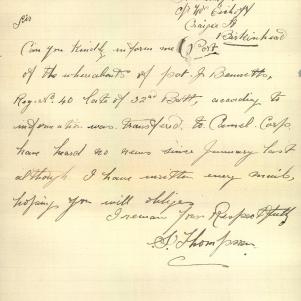 c/o Mr
Craigie St
Sir Birkenhead
Can you kindly inform me (Port
of the whereabouts of pvt. J. Bennetts,
Reg. No. 40 late of 32nd Batt, according to
information was transferd to Camel Corp.
have heard no news since January last
although I have written every mail,
hoping you will oblige
I remain Your Respectfully
J. Thompson